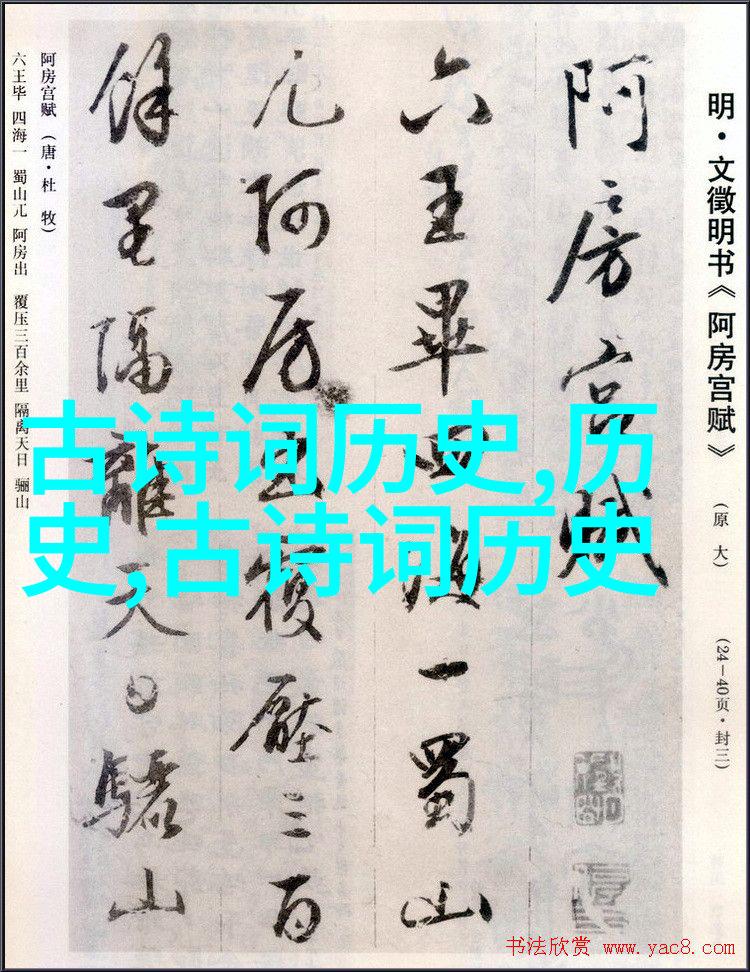 明·文徵明书《阿房宫赋》 (原大) (24—40页·封三)
阿房宫赋
六王畢四海一蜀山
兀阿房出復壓三百
餘里隔離天日驪山
阿房宫赋(唐·杜 牧)
六王毕 四海一 蜀山兀 阿房出 覆压三百余里 隔离天日 骊山
古诗词历史,历
史,古诗词历史
书法欣赏 www.yac8.com